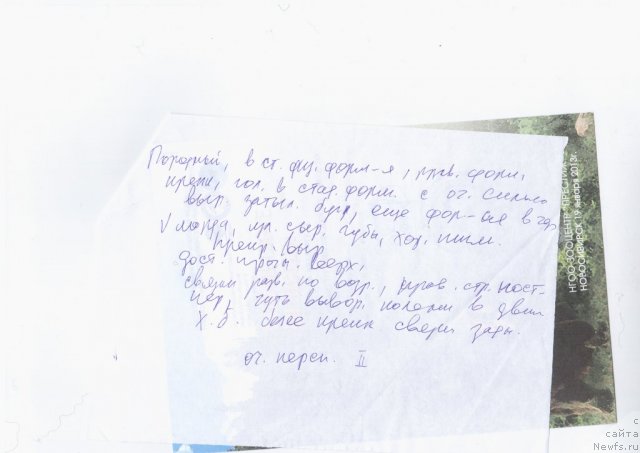 Породный, в ст. физ. форм-я, прав. форм,
крепк, гол. в стад. форм. с оч. сильно
выр. затыл. бугр, еще фор-ся в чер
морда, сыр. губы, хор. пигм.
крепк. выр
дост. прочн. верх,
связки разв. по возр., прав. стр. пост-
пер, чуть вывор. в движ
х. б. более крепк связки зады.
оч. персп. II
НГОО "ЗООЦЕНТР "ПРЕСТИЖ"
НОВОСИБИРСК 19 января 2013г.
с
сайта
Newfs.ru